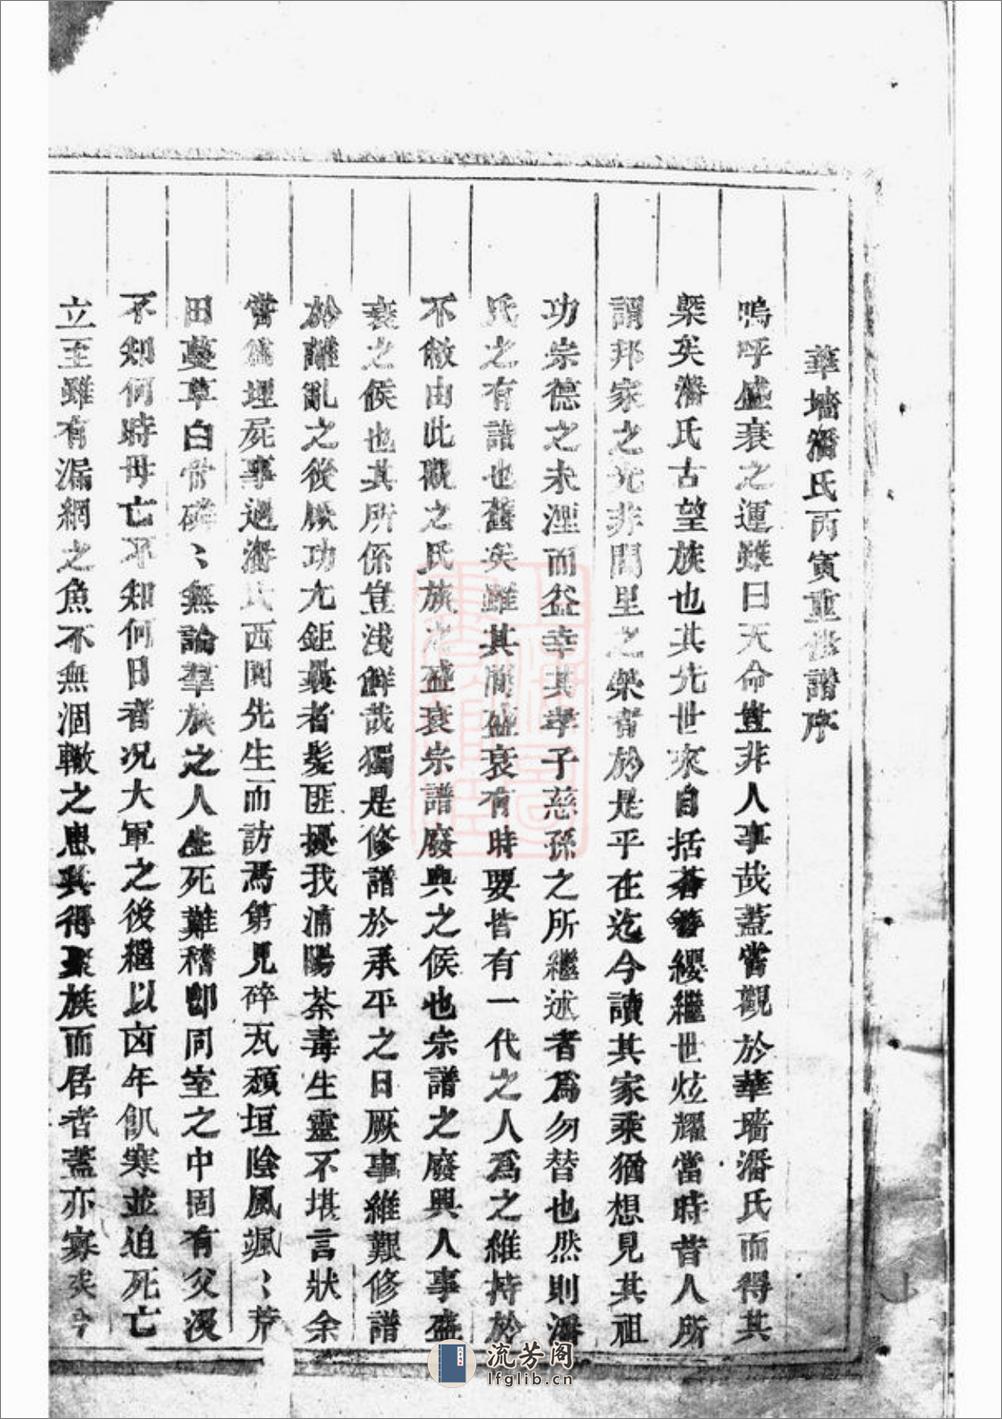 華墻潘氏丙寅重修譜序
嗚呼盛衰之運雖曰天命豈非人事哉蓋嘗觀於華墻潘氏而得其
槩矣潘氏古望族也其先世來自括蒼簪纓繼世炫耀當時昔人所
謂邦家之光非閭里之榮者於是乎在迄今讀其家乘猶想見其祖
功宗德之未湮而益幸其孝子慈孫之所繼述者為勿替也然則潘
氏之有譜也舊矣雖其間盛衰有時要皆有一代之人為之維持於
不敝由此觀之氏族之盛衰宗譜廢興之候也宗譜之廢興人事盛
衰之候也其所係豈淺鮮哉獨是修譜於承平之日厥事維艱修譜
於離亂之後厥功尤鉅曩者髮匪擾我浦陽荼毒生靈不堪言狀余
嘗為埋屍事過潘氏西園先生而訪焉第見碎瓦頹垣陰風颯〻荒
田蔓草白骨磷〻無論羣族之人生死難稽即同室之中固有父沒
不知何時母亡不知何日者况大軍之後繼以凶年飢寒並迫死亡
立至雖有漏網之魚不無涸轍之患其得聚族而居者蓋亦寡矣今
流芳阁
lfglib.cn